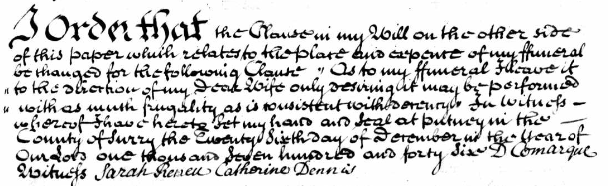 I Order that the Clause in my Will on the other side
of this paper which relates to the place and expence of my ffuneral
be changed for the following Clause " As to my ffuneral I leave it
" to the direction of my Dear Wife only desiring it may be performed
" with as much frugality as is consistent with decency" In Witness
whereof I have hereto Set my hand and Seal at putney in the
County of Surry the Twenty Sixth day of December in the Year of
Our Lord one thousand Seven hundred and forty Six D Comarque
Witness Sarah Catherine Dennis